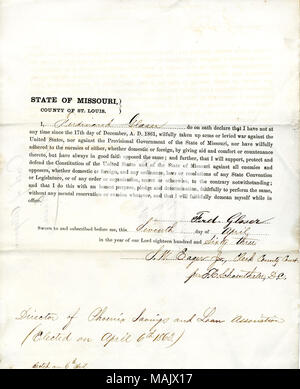 STATE OF MISSOURI,
COUNTY OF ST. LOUIS.
I, Ferdinand Glaser do on oath declare that I have not at
any time since the 17th day of December, A. D. 1861, wilfully taken up arms or levied war against the
United States, nor against the Provisional Government of the State of Missouri, nor have wilfully
adhered to the enemies of either, whether domestic or foreign, by giving aid and comfort or countenance
thereto, but have always in good faith opposed the same; and further, that I will support, protect and
defend the Constitution of the United States and of the State of Missouri against all enemies and
opposers, whether domestic or foreign, and any ordinance, laws or resolutions of any State Convention
or Legislature, or of any order or organization, secret or otherwise, to the contrary notwithstanding;
and that I do this with an honest purpose, pledge and determination, faithfully to perform the same,
without any mental reservation or evasion whatever, and that I will demean myself loyally while in
Fred. Glaser
Sworn to and subscribed before me, this Seventh day of April
in the year of our Lord eighteen hundred and Sixty three
Clerk County Court
D.C.
Director of Phoenix Savings and Loan Association
(Elected on April 6th 1863.)
alamy
MAJX17